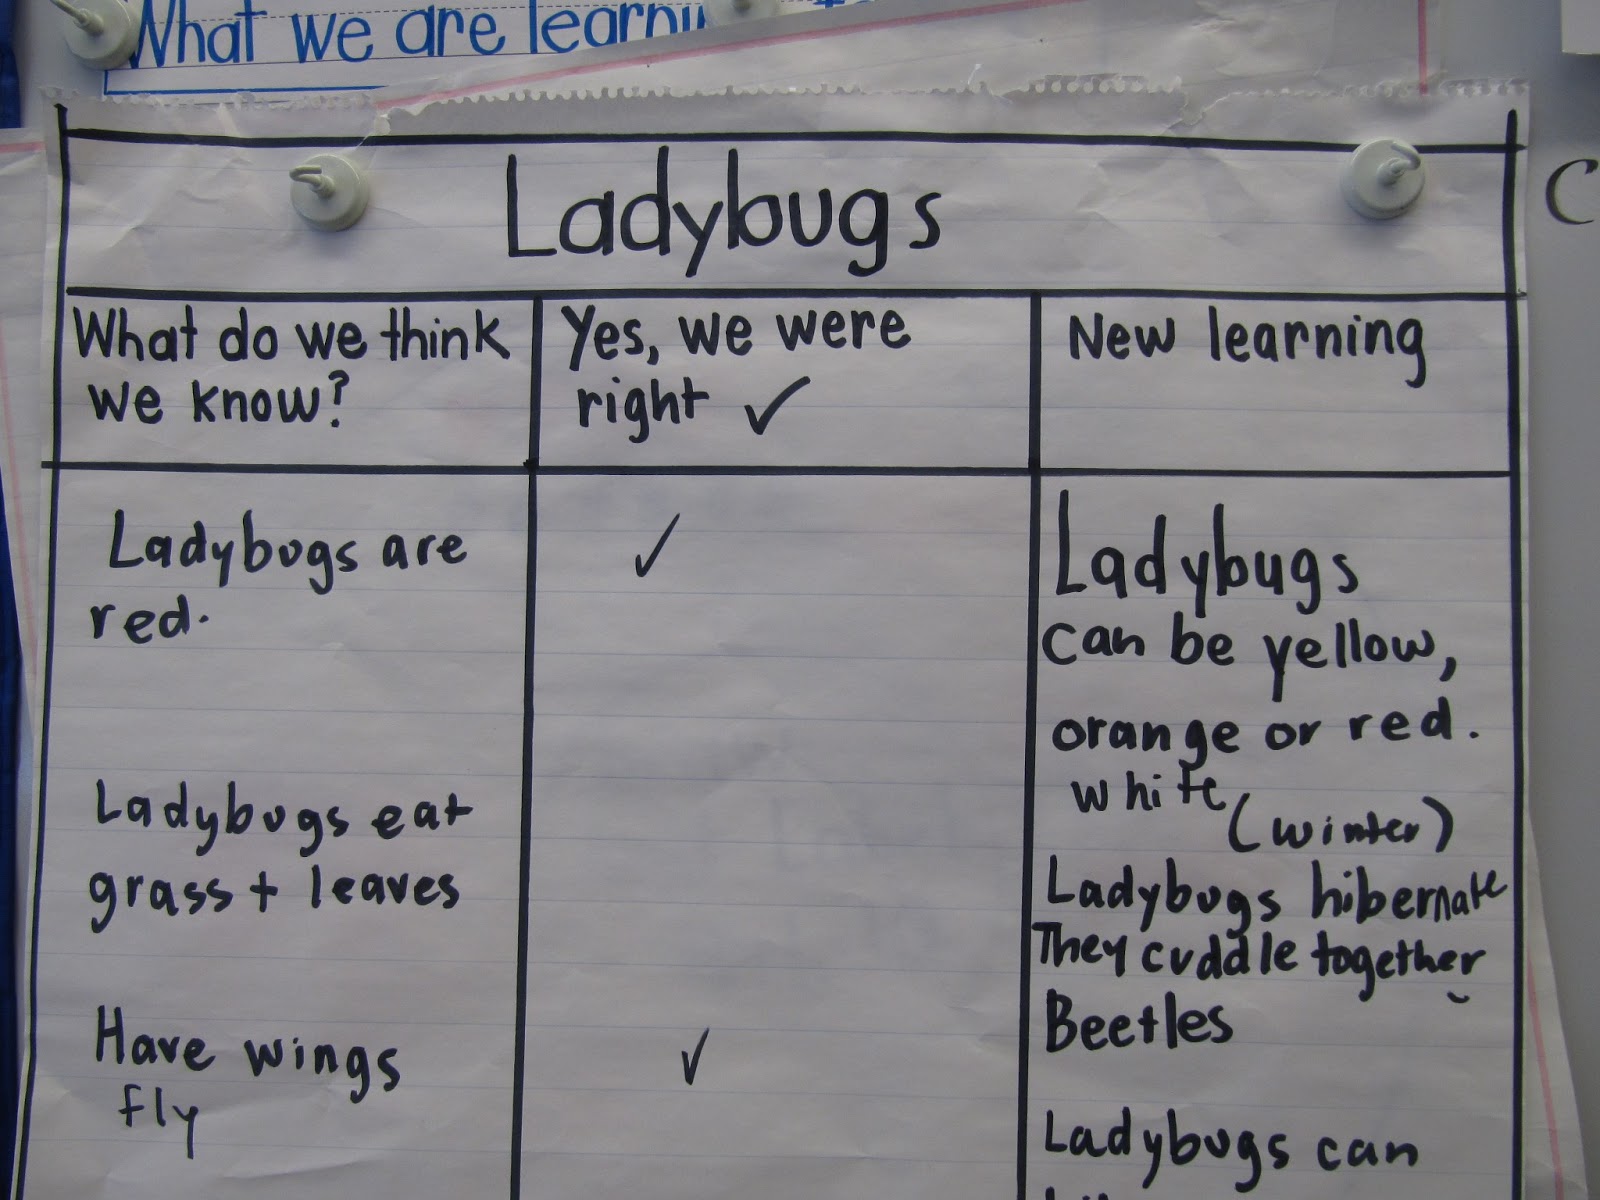 What we are learning
Ladybugs
What do we think
we know?
Yes, we were
right ✓
New learning
Ladybugs are
red.
✓
Ladybugs eat
grass + leaves
Have wings
fly
✓
Ladybugs
can be yellow,
orange or red.
white
(winter)
Ladybugs hibernate
They cuddle together
Beetles
Ladybugs can
C